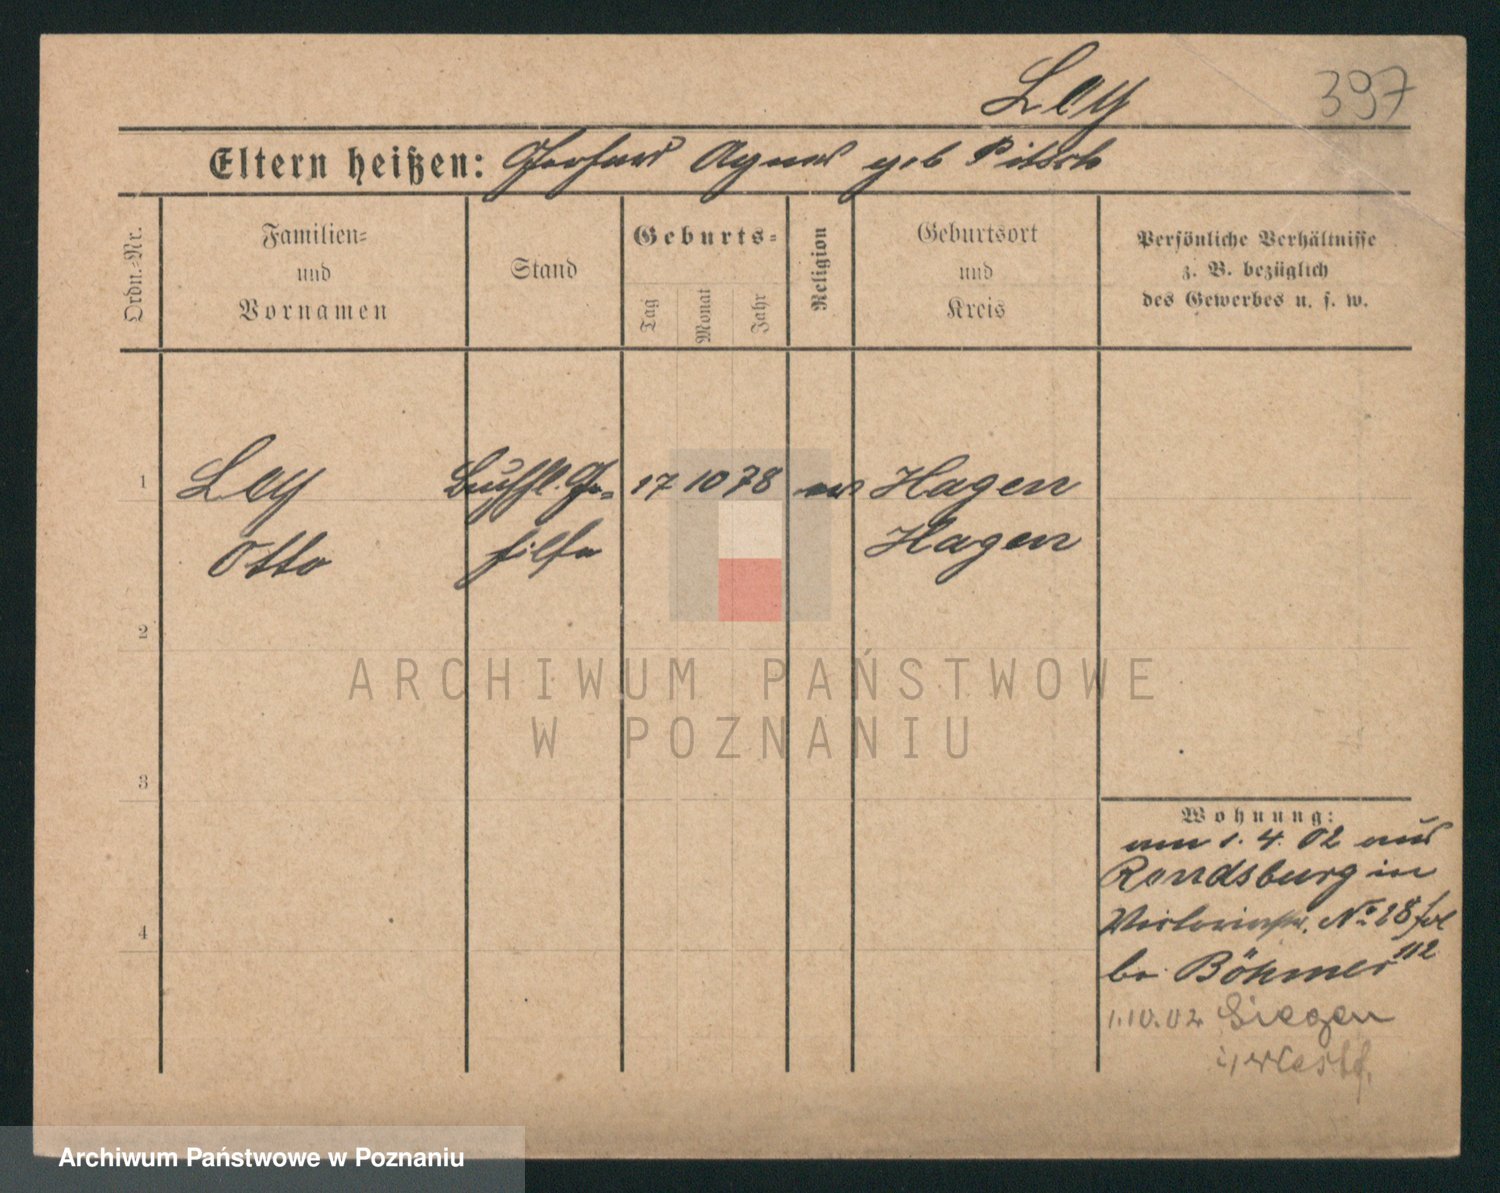 Ley
397
Eltern heißen: Gerhard Agnes geb Pitsch
Ordn.-Nr.
Familien-
und
Vornamen
Stand
Geburts-
Tag
Monat
Jahr
Religion
Geburtsort
und
Kreis
Persönliche Verhältnisse
z. B. bezüglich
des Gewerbes u. s. w.
1
Ley
Buchh. Ge-
17 10 78
Hagen
Otto
hilfe
Hagen
2
ARCHIWUM PAŃSTWOWE
W POZNANIU
3
Wohnung:
am 1. 4. 02 aus
Rendsburg in
Victoriastr. No 28
4
bei Böhmer
1.10.02 Siegen
i/Westf.
Archiwum Państwowe w Poznaniu